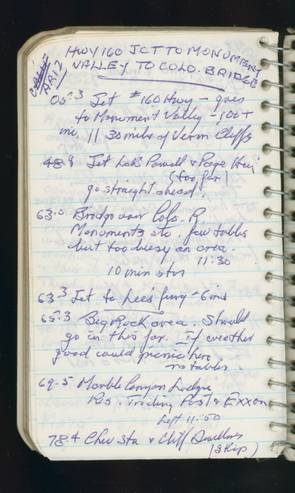 HWY 160 JCT TO MONUMENT
VALLEY TO COLO. BRIDGE
ARIZ
05.3 Jct #160 Hwy - goes
to Monument Valley - 100+
mi, 11 30 miles of Verm Cliffs
48.9 Jct Lake Powell & Page Hwy
(too far)
go straight ahead.
63.0 Bridge over Colo. R
Monuments etc. few tables
but too busy an area.
11:30
10 min stop
63.3 Jct to Lees ferry - 6 mi
65.3 Big Rock area. Should
go in this far. If weather
good could picnic here
no tables
69.5 Marble Canyon Lodge
Res. Trading Post & Exxon
Left 11:50
78.4 Chev Sta & Cliff Dwellers
(skip)